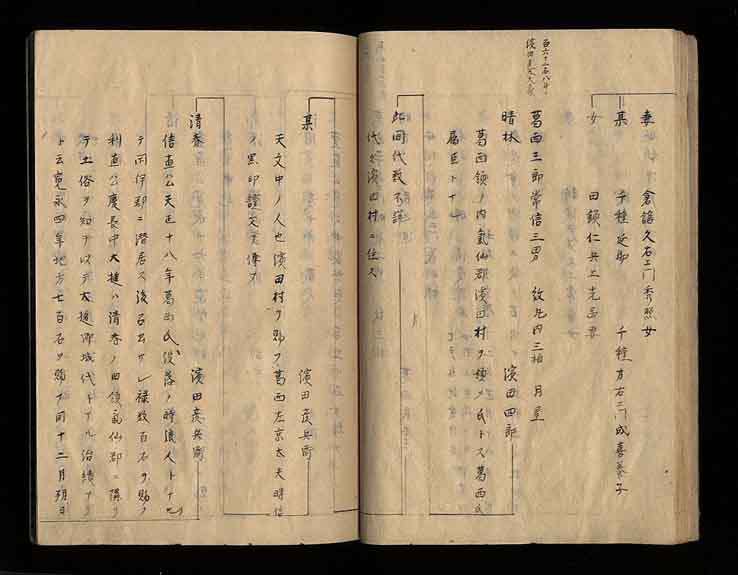 妻 倉語久右エ門秀照女
某 千種延助 千種万右エ門成喜養子
女 田鎖仁兵エ光
百六十二石八斗
濱田
葛西三郎常信三男 紋丸内三柏 月星
晴林 濱田四郎
葛西領ノ内氣仙郡濱田村ヲ領ノ氏トス葛西氏
屬臣トナル
此間代数不詳
代々濱田村ニ住ス
某 濱田彦兵衛
天文中ノ人也濱田村ヲ賜フ葛西左京太夫晴信
ノ黒印證文家傳ス
清春 濱田彦兵衛
信直公天正十八年葛西氏没落ノ時浪人トナリ
テ閉伊郡ニ潜居ス後召出サレ禄数百石ヲ賜フ
利直公慶長中大槌ハ清春ノ田領氣仙郡ニ隣リ
テ土俗ヲ知テ以テ大槌御城代トナル治績アリ
ト云寛永四年地方七百石ヲ賜フ同十二月朔日